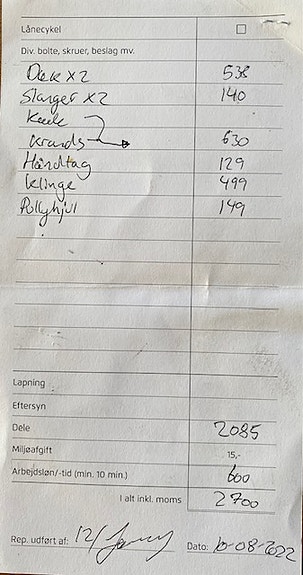 Lånecykel
Div. bolte, skruer, beslag mv.
Dæk x2 538
Slanger x2 140
Kæde
Krands 630
Håndtag 129
Klinge 499
Pollyhjul 149
Lapning
Eftersyn
Dele 2085
Miljøafgift 15,-
Arbejdsløn/-tid (min. 10 min.) 600
I alt inkl. moms 2700
Rep. udført af: 12/ Dato: 10-08-2022